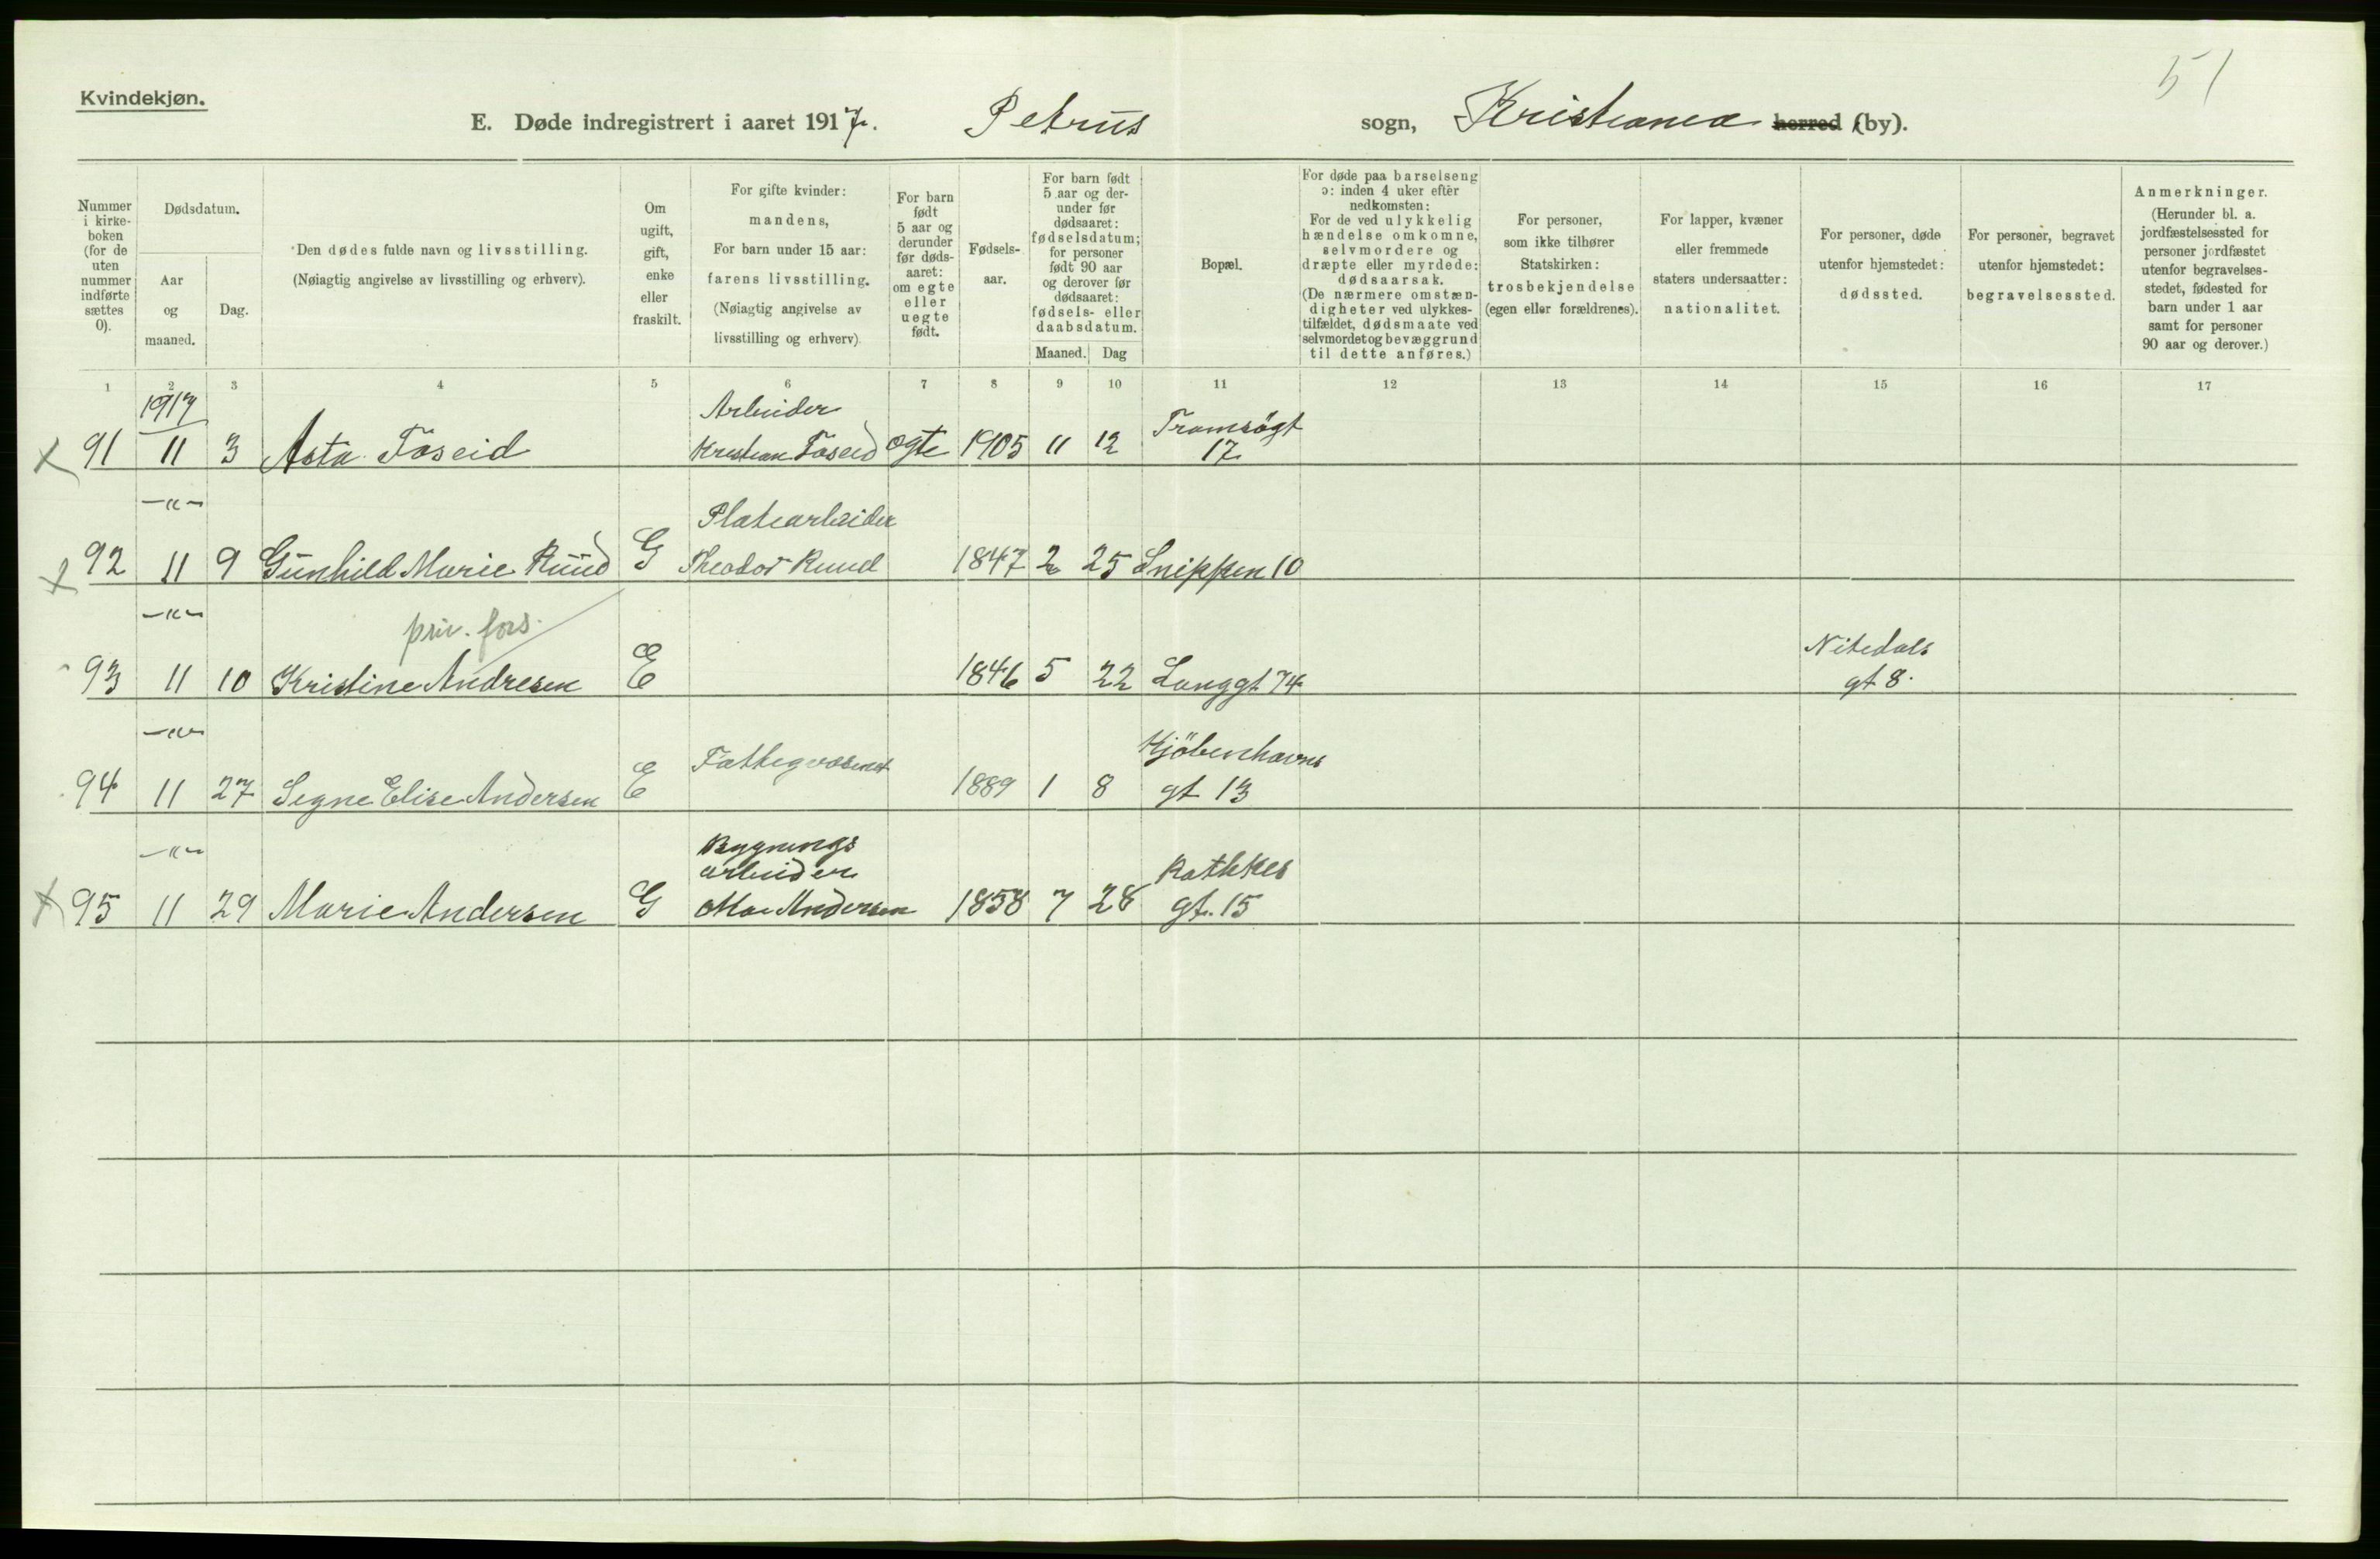 51
Kvindekjøn.
E. Døde indregistrert i aaret 1917. Petrus sogn, Kristiania herred (by).
Nummer i kirkeboken (for de uten nummer indførte sættes 0).
Dødsdatum.
Aar og maaned.
Dag.
Den dødes fulde navn og livsstilling.
(Nøiagtig angivelse av livsstilling og erhverv).
Om ugift, gift, enke eller fraskilt.
For gifte kvinder: mandens,
For barn under 15 aar: farens livsstilling.
(Nøiagtig angivelse av livsstilling og erhverv).
For barn født 5 aar og derunder før dødsaaret: om egte eller uegte født.
Fødselsaar.
For barn født 5 aar og derunder før dødsaaret: fødselsdatum; for personer født 90 aar og derover før dødsaaret: fødsels- eller daabsdatum.
Maaned. Dag
Bopæl.
For døde paa barselseng ɔ: inden 4 uker efter nedkomsten:
For de ved ulykkelig hændelse omkomne, selvmordere og dræpte eller myrdede: dødsaarsak.
(De nærmere omstændigheter ved ulykkestilfældet, dødsmaate ved selvmordet og bevæggrund til dette anføres.)
For personer, som ikke tilhører Statskirken: trosbekjendelse (egen eller forældrenes).
For lapper, kvæner eller fremmede staters undersaatter: nationalitet.
For personer, døde utenfor hjemstedet: dødssted.
For personer, begravet utenfor hjemstedet: begravelsessted.
Anmerkninger.
(Herunder bl. a. jordfæstelsessted for personer jordfæstet utenfor begravelsesstedet, fødested for barn under 1 aar samt for personer 90 aar og derover.)
1 2 3 4 5 6 7 8 9 10 11 12 13 14 15 16 17
1917 Arbeider Tromsögt
91 11 3 AstaFöseid Kristian Föseid egte 1905 11 12 17
—"— Platearbeider
92 11 9 Gunhild Marie Ruud G Theodor Ruud 1847 2 25 Snippen 10
—"— priv. fors. Nitedals
93 11 10 Kristine Andresen E 1846 5 22 Langgt 74 gt 8.
—"— Fattigvæsenet Kjöbenhavns
94 11 27 Signe Elise Andersen E 1889 1 8 gt 13
—"— Bygnings
arbeider Rathkes
95 11 29 Marie Andersen G Andersen 1858 7 28 gt. 15